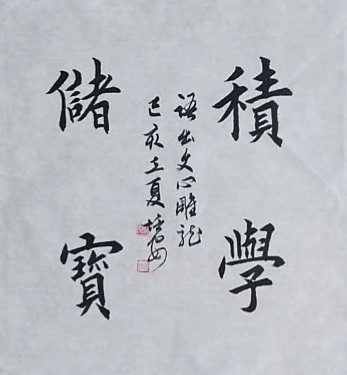 積學
儲寶
語出文心雕龍
己亥立夏